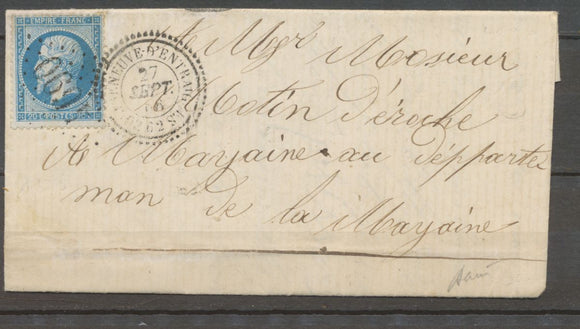 EMPIRE FRANC
20 C POSTES 20 C
NEUVE-D'ENTRAIG
27
SEPT.
66
(62)
A Mgr Mosieur
Motin d'éroche
A Mayaine au départe
man de la Mayaine